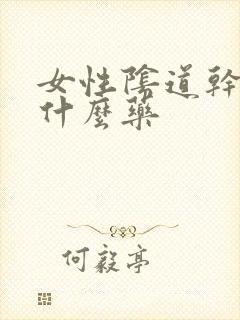 女性陰道幹
什麼藥
何毅亭